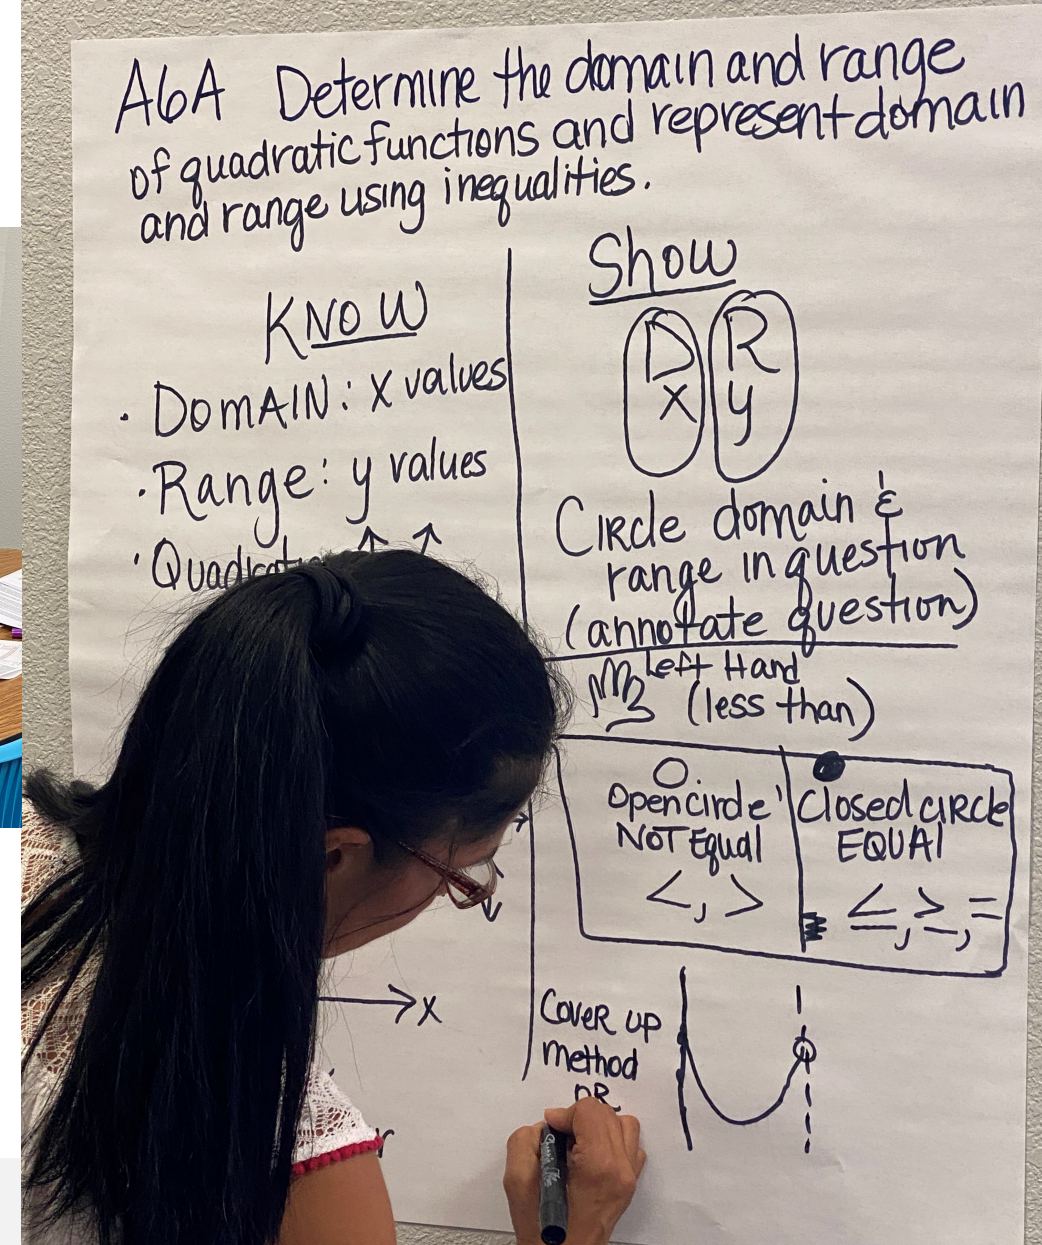 A6A Determine the domain and range
of quadratic functions and represent domain
and range using inequalities.
KNOW
• DOMAIN: X values
• Range: y values
•
Show
D R
X y
CIRcle domain &
range in question
(annotate question)
left Hand
(less than)
Open circle
NOT Equal
<, >
Closed cIRcle
EQUAl
≤, ≥, =
X
Cover up
method
OR